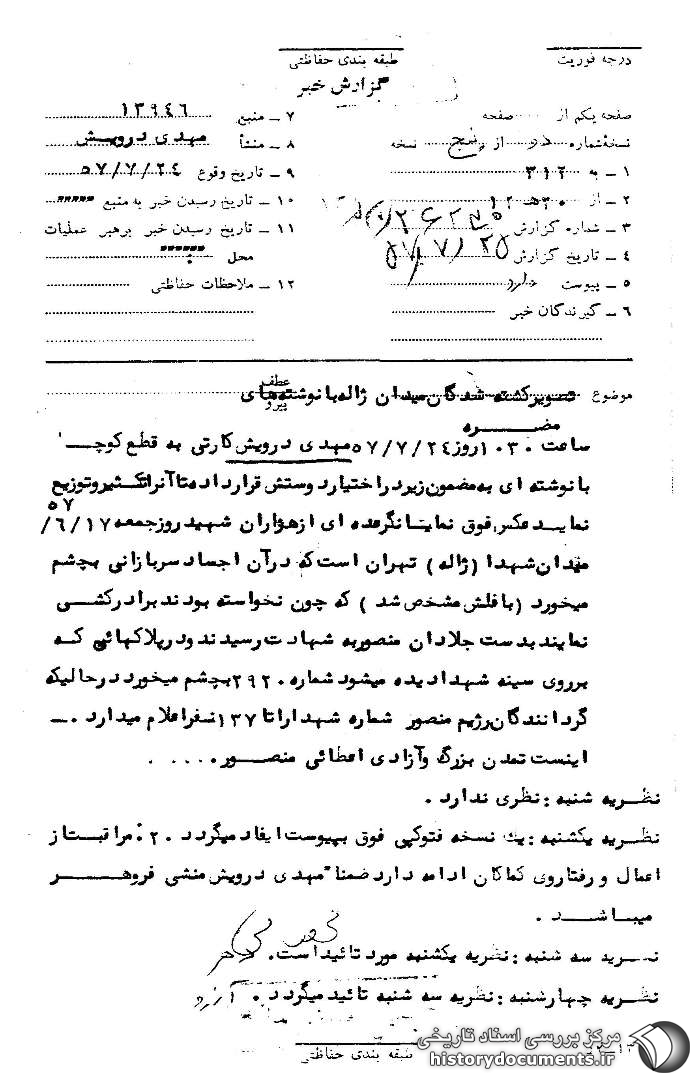 درجه فوریت
طبقه بندی حفاظتی
گزارش خبر
صفحه یکم از صفحه
نسخهٔ شماره دو از پنج نسخه
۱ – به ۳۱۲
۲ – از ۲۰ه۱۲
۳ – شماره گزارش
۴ – تاریخ گزارش ۵۷/۷/۲۵
۵ – پیوست دارد
۶ – گیرندگان خبر
۷ – منبع ۱۳۹۴۶
۸ – منشأ مهدی درویش
۹ – تاریخ وقوع ۵۷/۷/۲۴
۱۰ – تاریخ رسیدن خبر به منبع
۱۱ – تاریخ رسیدن خبر برهبر عملیات
محل
۱۲ – ملاحظات حفاظتی
موضوع تصویر کشته شدگان میدان ژاله با نوشته های
عطف
پیرو
مضره
ساعت ۱۰۳۰ روز ۵۷/۷/۲۴ مهدی درویش کارتی به قطع کوچک
با نوشته ای به مضمون زیر در اختیار دوستش قرار داده تا آنرا تکثیر و توزیع
نماید عکس فوق نمایانگر عده ای از هزاران شهید روز جمعه ۱۷/۶/۵۷
میدان شهدا (ژاله) تهران است که در آن اجساد سربازانی بچشم
میخورد (با فلش مشخص شد) که چون نخواسته بودند برادر کشی
نمایند بدست جلادان منصور به شهادت رسیدند و در پلاکهائی که
بر روی سینه شهدا دیده میشود شماره ۲۹۲۰ بچشم میخورد در حالیکه
گردانندگان رژیم منصور شماره شهدا را تا ۱۳۷ نفر اعلام میدارد . –
اینست تمدن بزرگ و آزادی اعطائی منصور . . . . .
نظریه شنبه : نظری ندارد .
نظریه یکشنبه : یک نسخه فتوکپی فوق بپیوست ایفاد میگردد . ۲ : مراقبت از
اعمال و رفتار وی کماکان ادامه دارد ضمنا" مهدی درویش منشی فروهر
میباشد .
نظریه سه شنبه : نظریه یکشنبه مورد تائید است .
نظریه چهارشنبه : نظریه سه شنبه تائید میگردد . آرزو
طبقه بندی حفاظتی
مرکز بررسی اسناد تاریخی
historydocuments.ir